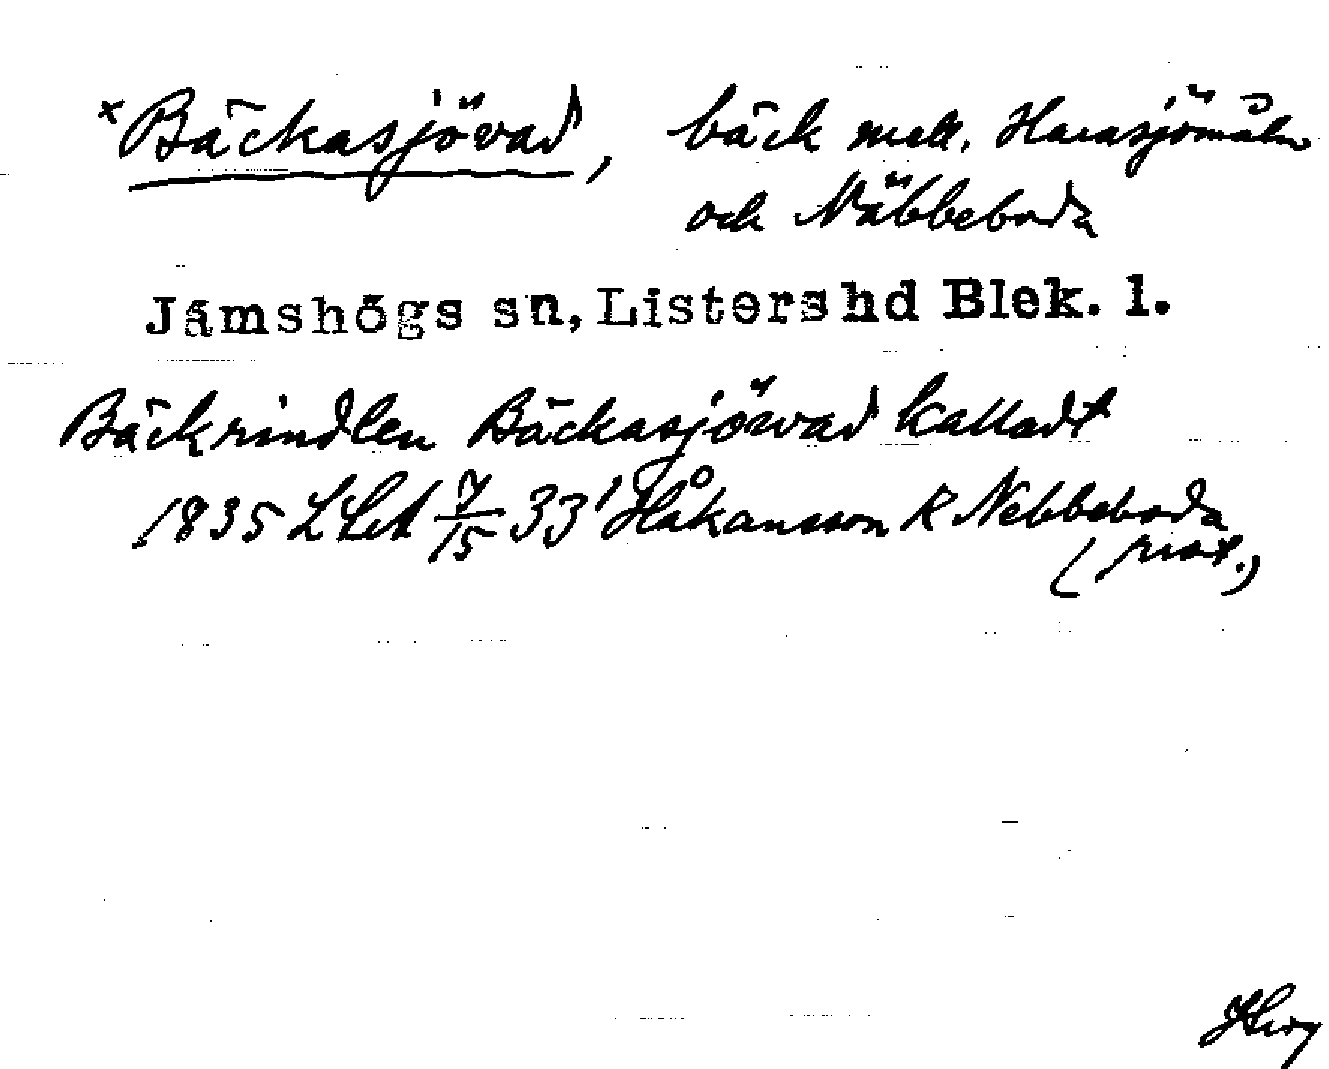 ×Bäckasjövad, bäck mell. Harasjömåla
och Näbbeboda
Jämshögs sn, Listers hd Blek. l.
Bäckrindlen Bäckasjöwad kalladt
1835 L Let 7/15 33' Håkansson R Nebbeboda